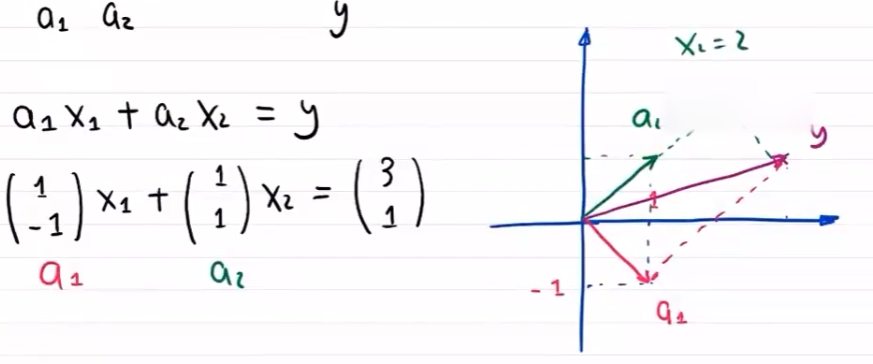 a₁ a₂ y
a₁ x₁ + a₂ x₂ = y
(1 -1) x₁ + (1 1) x₂ = (3 1)
a₁ a₂
x₂ = 2
a₂
y
1
- 1
a₁